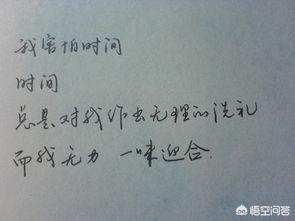 我害怕时间
时间
总是对我作出无理的洗礼
而我无力 一味迎合.
悟空问答